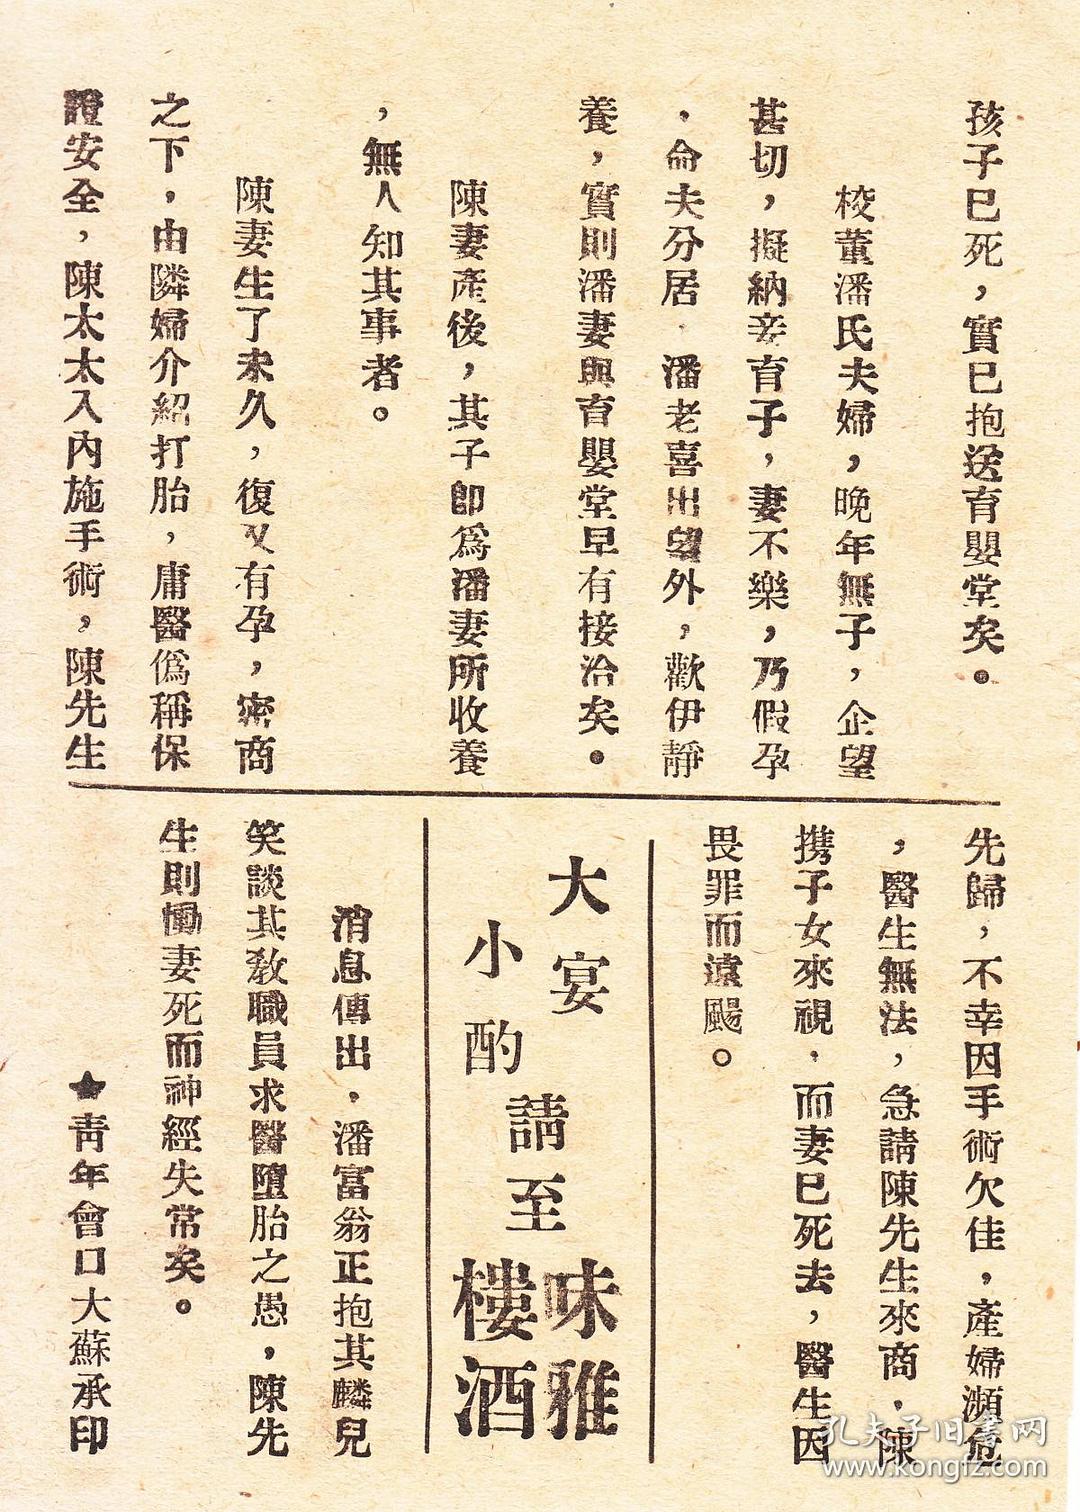 孩子已死，實已抱送育嬰堂矣。
校董潘氏夫婦，晚年無子，企望
甚切，擬納妾育子，妻不樂，乃假孕
，命夫分居，潘老喜出望外，歡伊靜
養，實則潘妻與育嬰堂早有接洽矣。
陳妻產後，其子即爲潘妻所收養
，無人知其事者。
陳妻生了未久，復又有孕，密商
之下，由隣婦介紹打胎，庸醫僞稱保
證安全，陳太太入內施手術，陳先生
先歸，不幸因手術欠佳，產婦瀕危
，醫生無法，急請陳先生來商，陳
携子女來視，而妻已死去，醫生因
畏罪而遠颺。
大宴
小酌
請至
味雅
酒樓
消息傳出，潘富翁正抱其麟兒
笑談其教職員求醫墮胎之愚，陳先
生則慟妻死而神經失常矣。
★青年會口大蘇承印
孔夫子旧書网
www.kongfz.com